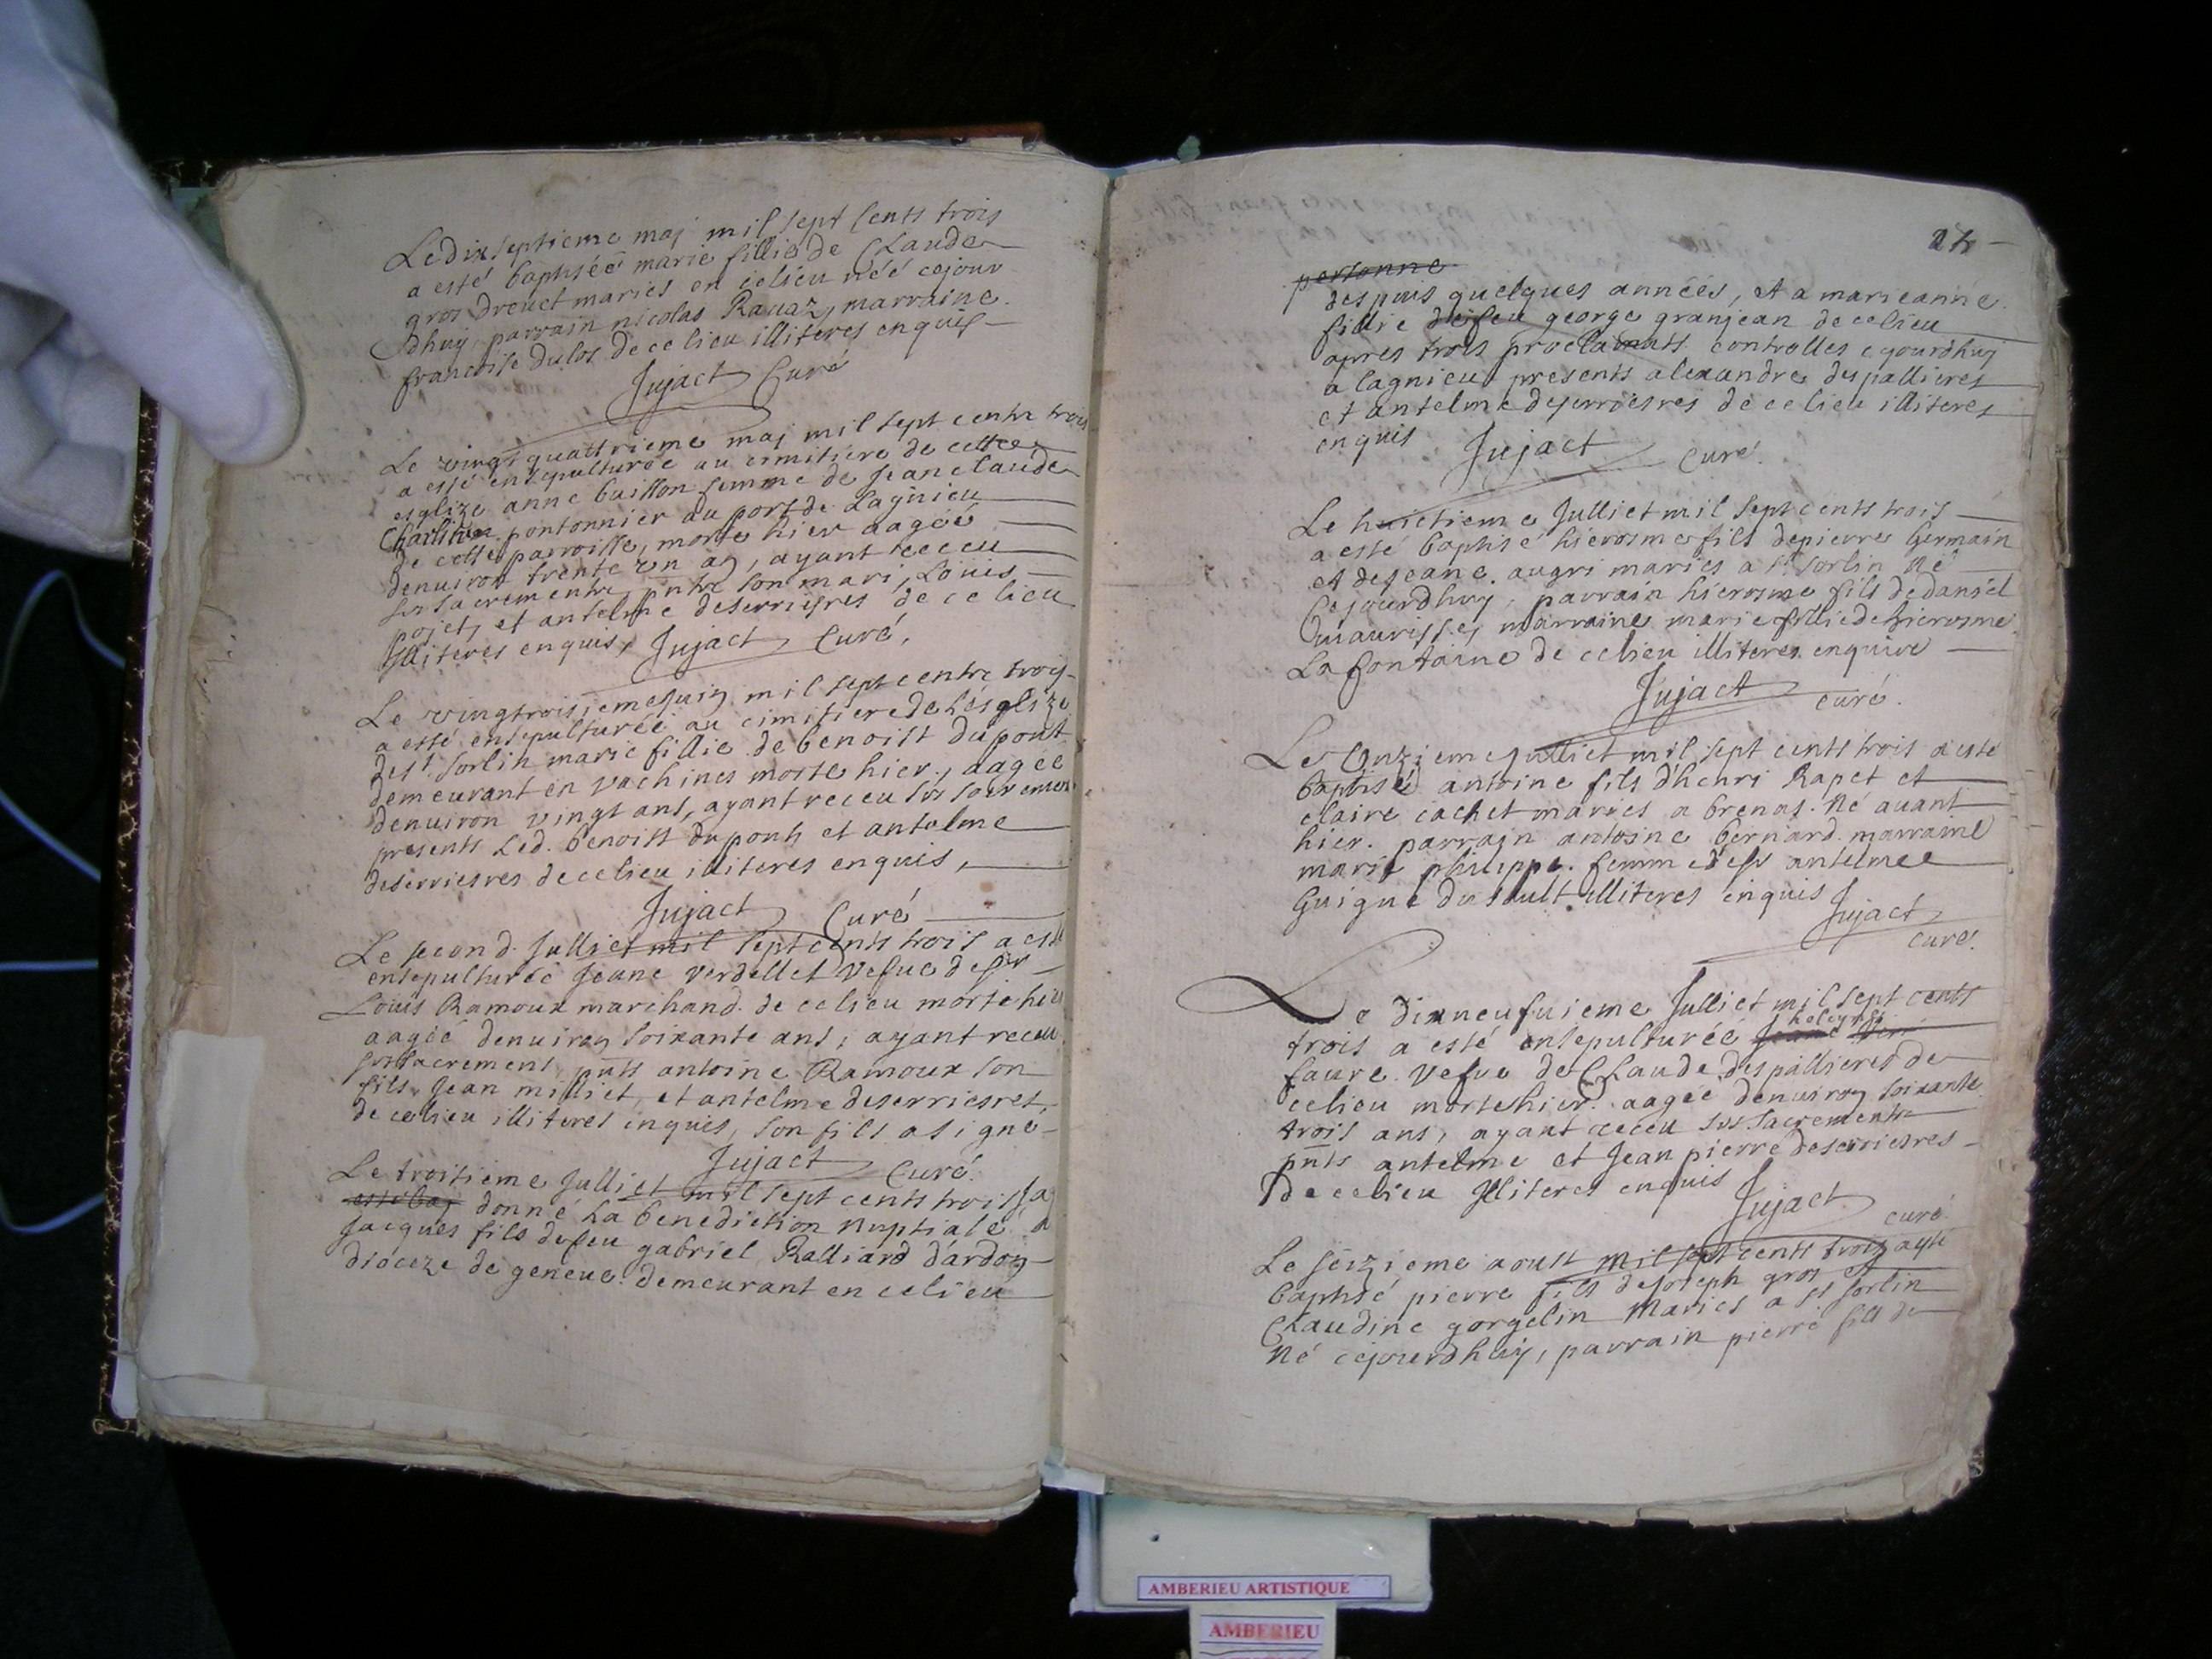 Le dix septieme maj mil sept cents trois
a esté baptisée marie fillie de Claude
gros dreuet maries en celieu néé cejour
dhuy, parrain nicolas Rauaz, marraine
francoise dulos de ce lieu illiteres enquis
Jujact Curé
Le vingt quattrieme maj mil sept centz trois
a esté ensepulturée au cimitiere de cette
esglize anne buisson femme de Jean claude
pontonnier au port de Lagnieu
de cette parroisse, morte hier aagéé
denuiron trente un an, ayant receu
ses sacrementz, pntz son mari, Louis
pojet, et antelme deserriesres de ce lieu
Illiteres enquis, Jujact Curé,
Le vingtroisieme Juin mil sept centz troys
a esté ensepulturéé au cimitiere de lésglize
de st. sorlin marie fillie de benoist dupont
demeurant en vachines morte hier, aagéé
denuiron vingt ans, ayant receu ses sacremens
presents Led. benoist dupont et antelme
deserriesres de celieu illiteres enquis,
Jujact Curé
Le second Julliet mil sept cents trois a esté
ensepulturéé Jeane verdellet vefue de sr
Louis Ramoux marchand de celieu morte hier
aagéé denuiron soixante ans, ayant receu
ses sacrement, pnts antoine Ramoux son
fils Jean milliet, et antelme deserriesres,
de celieu illiteres enquis, son fils a signé
Jujact Curé
Le troisieme Julliet mil sept cents trois Ja
donné La benediction nuptiale a
Jacques fils de feu gabriel Ralliard dardon
dioceze de geneue demeurant en celieu
24
personne
despuis quelques annéés, et a marieanne
fillie de feu george granjean de celieu
apres trois proclamats controlles cejourdhuy
a lagnieu presents alexandre despallieres
et antelme deserriesres de celieu illiteres
enquis Jujact Curé.
Le huictieme Julliet mil sept cents trois
a esté baptisé hierosme fils de pierre Germain
et de Jeane augri maries a st. sorlin né
Cejourdhuy, parrain hierosme fils de daniel
marraine marie fillie de hierosme
La fontaine de celieu illiteres enquire
Jujact curé.
Le Onzieme Julliet mil sept cents trois a esté
Baptisé antoine fils d'henri Rapet et
claire cachet maries a brenas. Né auant
hier. parrain antoine bernard. marraine
marie philippe. femme de sr antelme
Guigue du sault illiteres enquis Jujact
curé.
Le dixneufuieme Julliet mil sept cents
trois a esté ensepulturéé Jeane
faure. vefue de Claude despallieres de
celieu morte hier. aagéé denuiron soixante
trois ans, ayant receu ses sacrementz
pnts antelme et Jean pierre deserriesres
de celieu Illiteres enquis Jujact
curé
Le seizieme aoust mil sept cents trois a esté
baptisé pierre fils de Joseph gros et
Claudine gorgelin Maries a st sorlin
Né cejourdhuy, parrain pierre fils de
AMBERIEU ARTISTIQUE
AMBERIEU